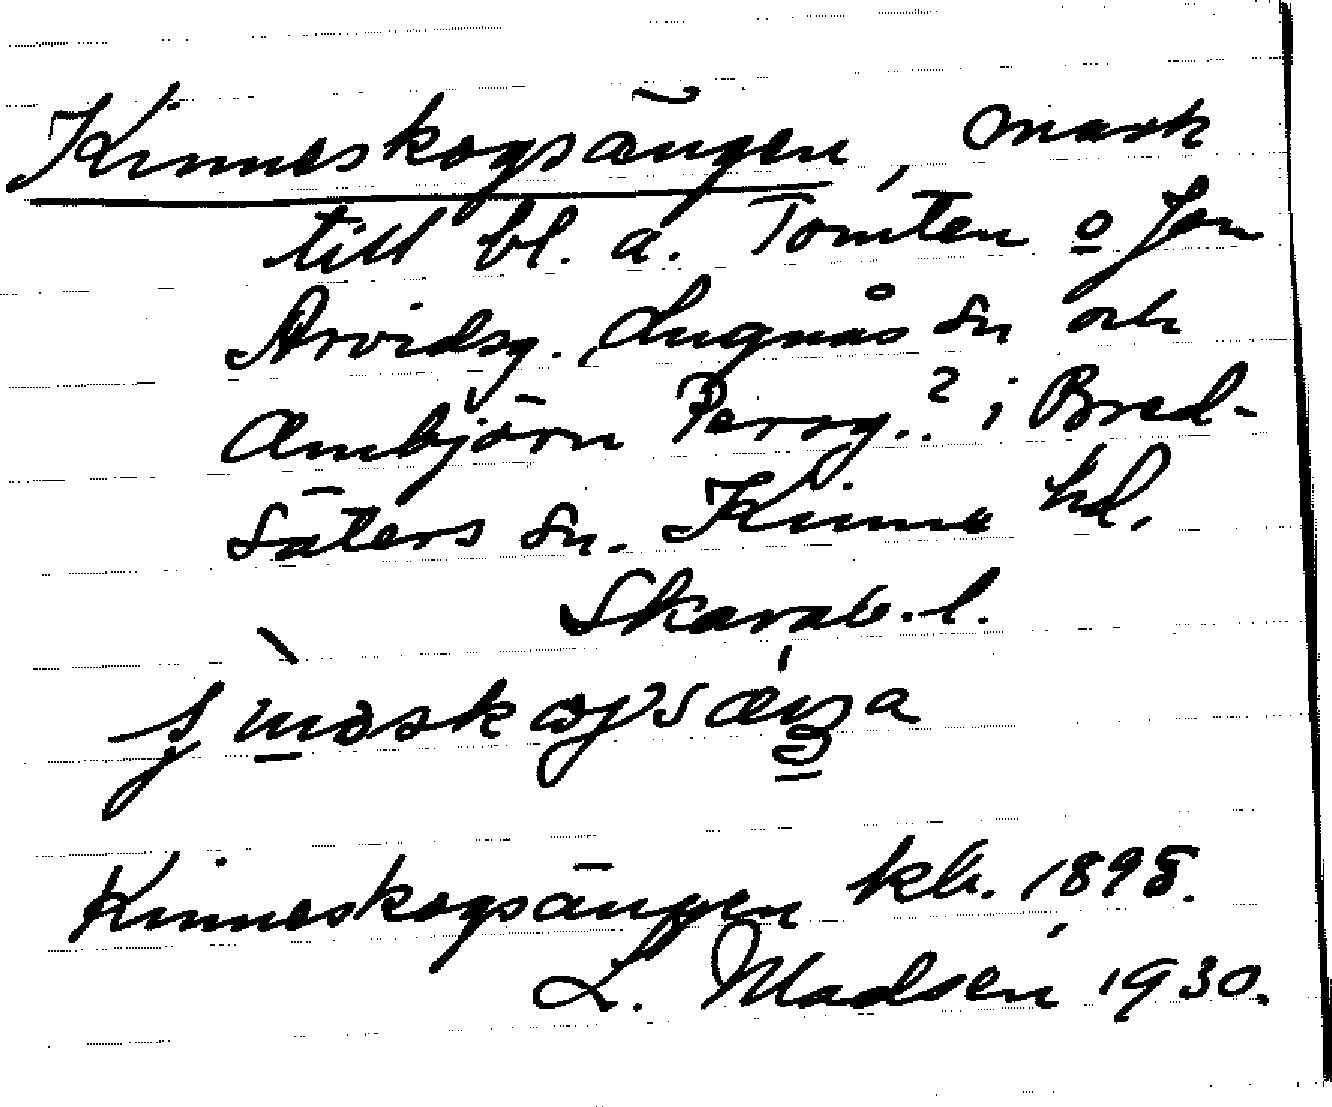 Kinneskogsängen, mark
till bl. a. Tomten o Jon
Arvidsg. Lugnås sn och
Ambjörn Persg.? i Bred-
säters sn. Kinne hd.
Skarab. l.
Kinneskogsängen kb. 1898.
L. Madsén 1930.